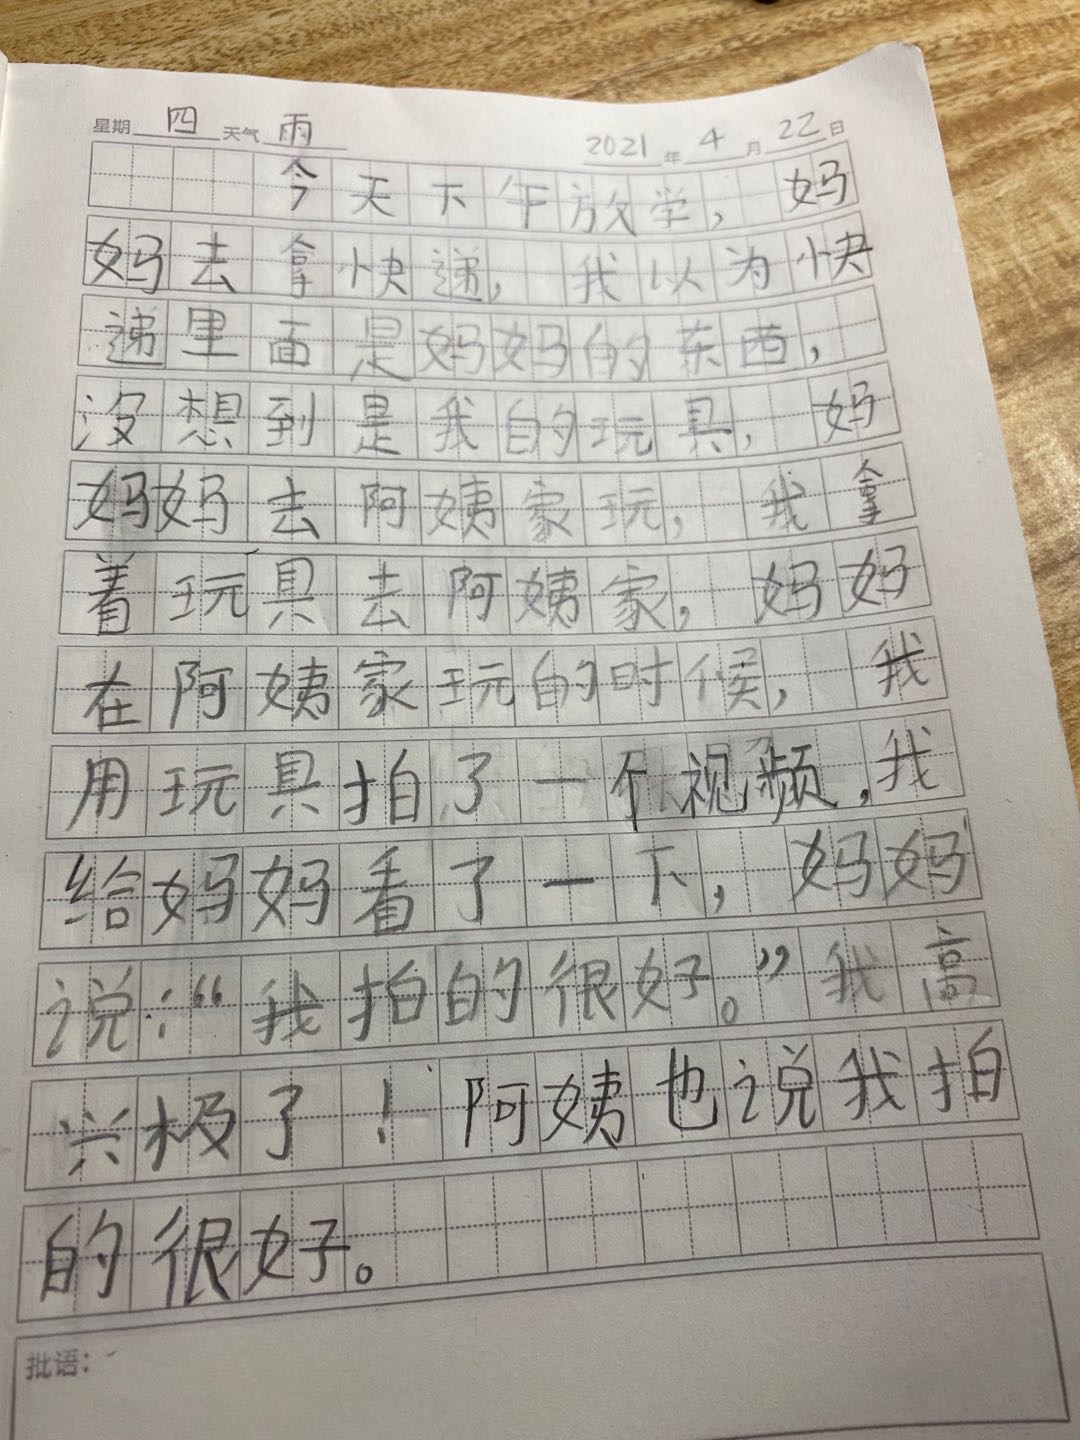 星期 四 天气 雨 2021 年 4 月 22 日
今天下午放学，妈
妈去拿快递，我以为快
递里面是妈妈的东西，
没想到是我的玩具，妈
妈妈去阿姨家玩，我拿
着玩具去阿姨家，妈妈
在阿姨家玩的时候，我
用玩具拍了一个视频，我
给妈妈看了一下，妈妈
说：“我拍的很好。”我高
兴极了！阿姨也说我拍
的很好。
批语：